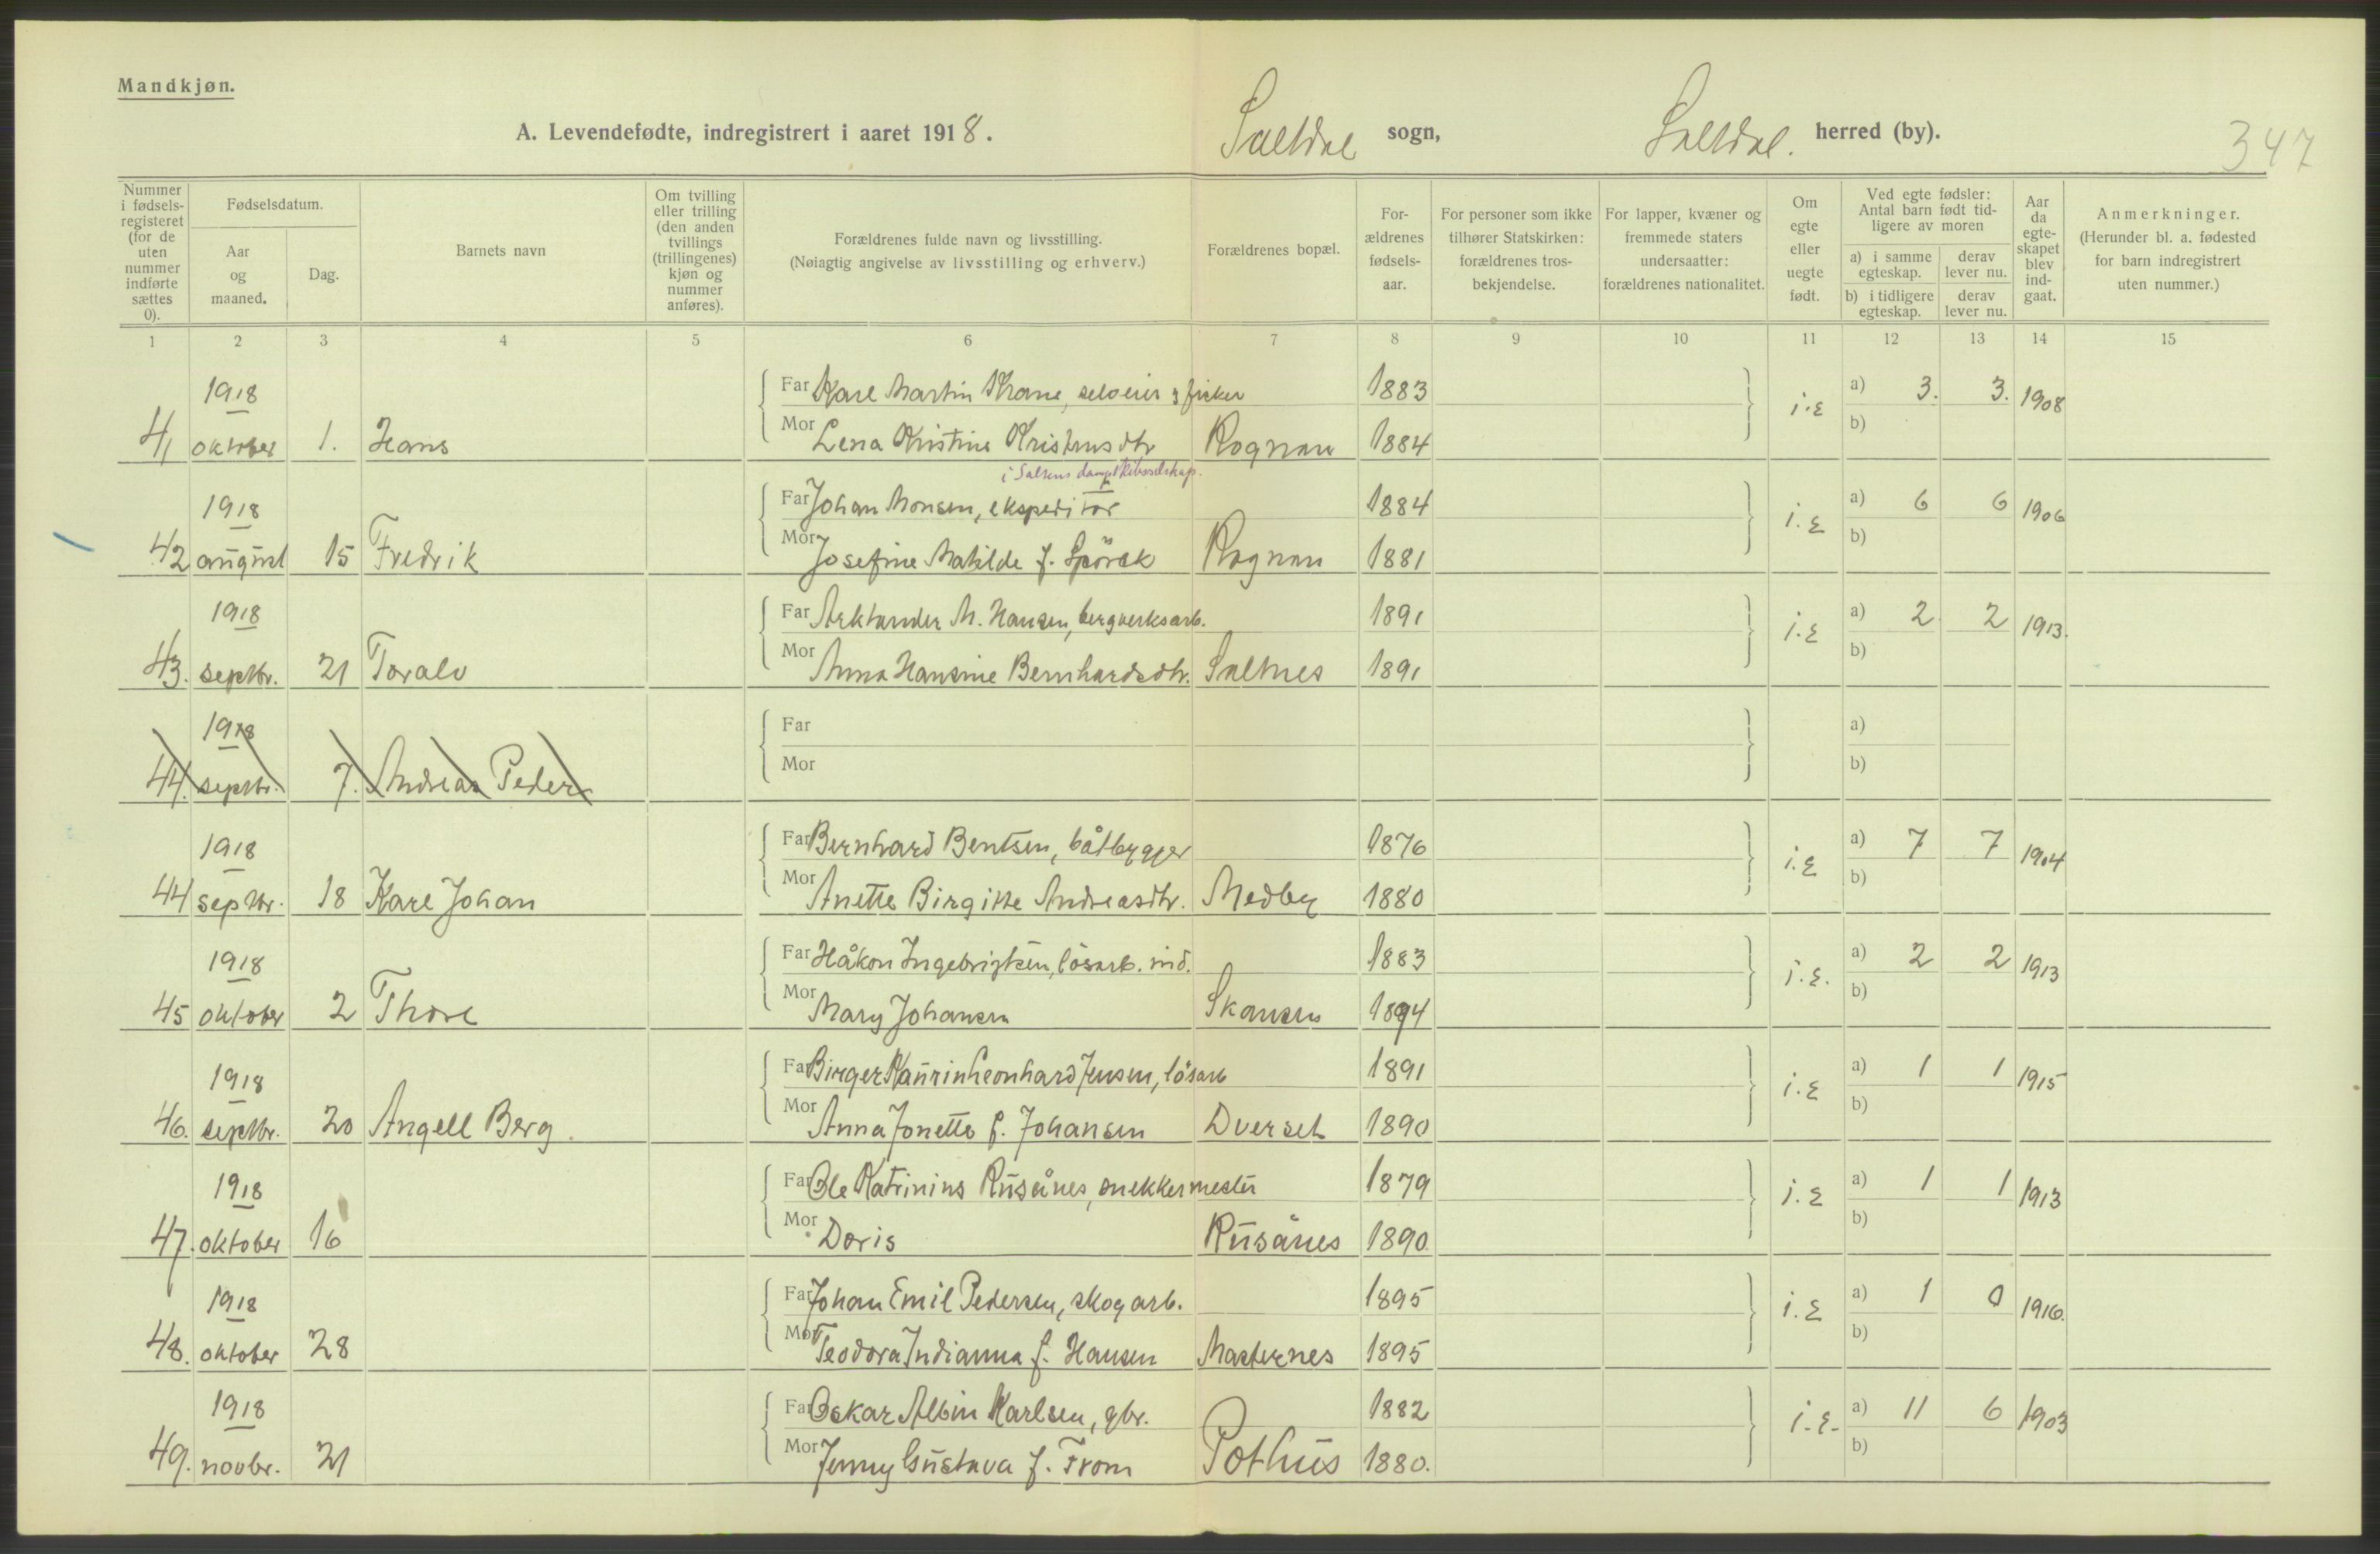 Mandkjøn.
A. Levendefødte, indregistrert i aaret 1918. Saltdal sogn, Saltdal. herred (by). 347
Nummer i fødsels-registeret (for de uten nummer indførte sættes 0).
Fødselsdatum.
Aar og maaned.
Dag.
Barnets navn
Om tvilling eller trilling (den anden tvillings (trillingenes) kjøn og nummer anføres).
Forældrenes fulde navn og livsstilling.
(Nøiagtig angivelse av livsstilling og erhverv.)
Forældrenes bopæl.
For-ældrenes fødsels-aar.
For personer som ikke tilhører Statskirken: forældrenes tros-bekjendelse.
For lapper, kvæner og fremmede staters undersaatter: forældrenes nationalitet.
Om egte eller uegte født.
Ved egte fødsler: Antal barn født tid-ligere av moren
a) i samme egteskap. derav lever nu.
b) i tidligere egteskap. derav lever nu.
Aar da egte-skapet blev ind-gaat.
Anmerkninger.
(Herunder bl. a. fødested for barn indregistrert uten nummer.)
1 2 3 4 5 6 7 8 9 10 11 12 13 14 15
1918 Far Karl Martin Krane, selveier & fisker 1883 i.E a) 3. 3. 1908
41 oktober 1. Hans Mor Lena Kristine Kristensdtr Rognan 1884 b)
i Saltens dampskibsselskap.
1918 Far Johan Monsen, ekspeditør 1884 i.E a) 6 6 1906
42 august 15 Fredrik Mor Josefine Matilde f. Spörck Rognan 1881 b)
1918 Far Arktander M. Hansen, bergverksarb. 1891 i.E a) 2 2 1913.
43. septbr. 21 Toralv Mor Anna Hansine Bernhardsdtr. Saltnes 1891 b)
1918 Far a)
44. septbr. 7. Andreas Peder Mor b)
1918 Far Bernhard Bentsen, båtbygger 1876 i.E a) 7 7 1904
44 septbr. 18 Karl Johan Mor Anette Birgitte Andreasdtr. Medby 1880 b)
1918 Far Håkon Ingebrigtsen, lösarb. ind. 1883 i.E. a) 2 2 1913
45 oktober 2 Thore Mor Mary Johansen Skansen 1894 b)
1918 Far Birger Kaurin Leonhard Jensen, lösarb 1891 i.E a) 1 1 1915
46. septbr. 20 Angell Berg. Mor Anna Jonette f. Johansen Dverset 1890 b)
1918 Far Ole Katrinius Rusånes, snekkermester 1879 i.E a) 1 1 1913
47. oktober 16 Mor Doris Rusånes 1890. b)
1918 Far Johan Emil Pedersen, skogarb. 1895 i.E a) 1 0 1916.
48. oktober 28 Mor Teodora Indianna f. Hansen Masternes 1895 b)
1918 Far Oskar Albin Karlsen, gbr. 1882 i.E. a) 11 6 1903
49. novbr. 21 Mor Jenny Gustava f. From Pothus 1880. b)